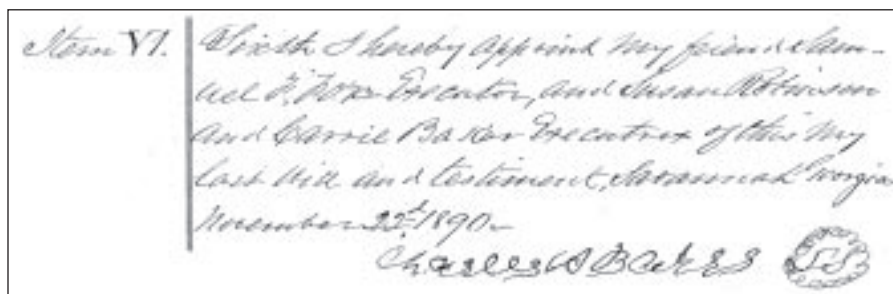 Item VI. Sixth I hereby appoint my friend Sam-
uel F. Executor, and Susan Robinson
and Carrie Baker Executrex of this my
last Will and testiment, Savannah Georgia
November 22d 1890.
Charles S Baker